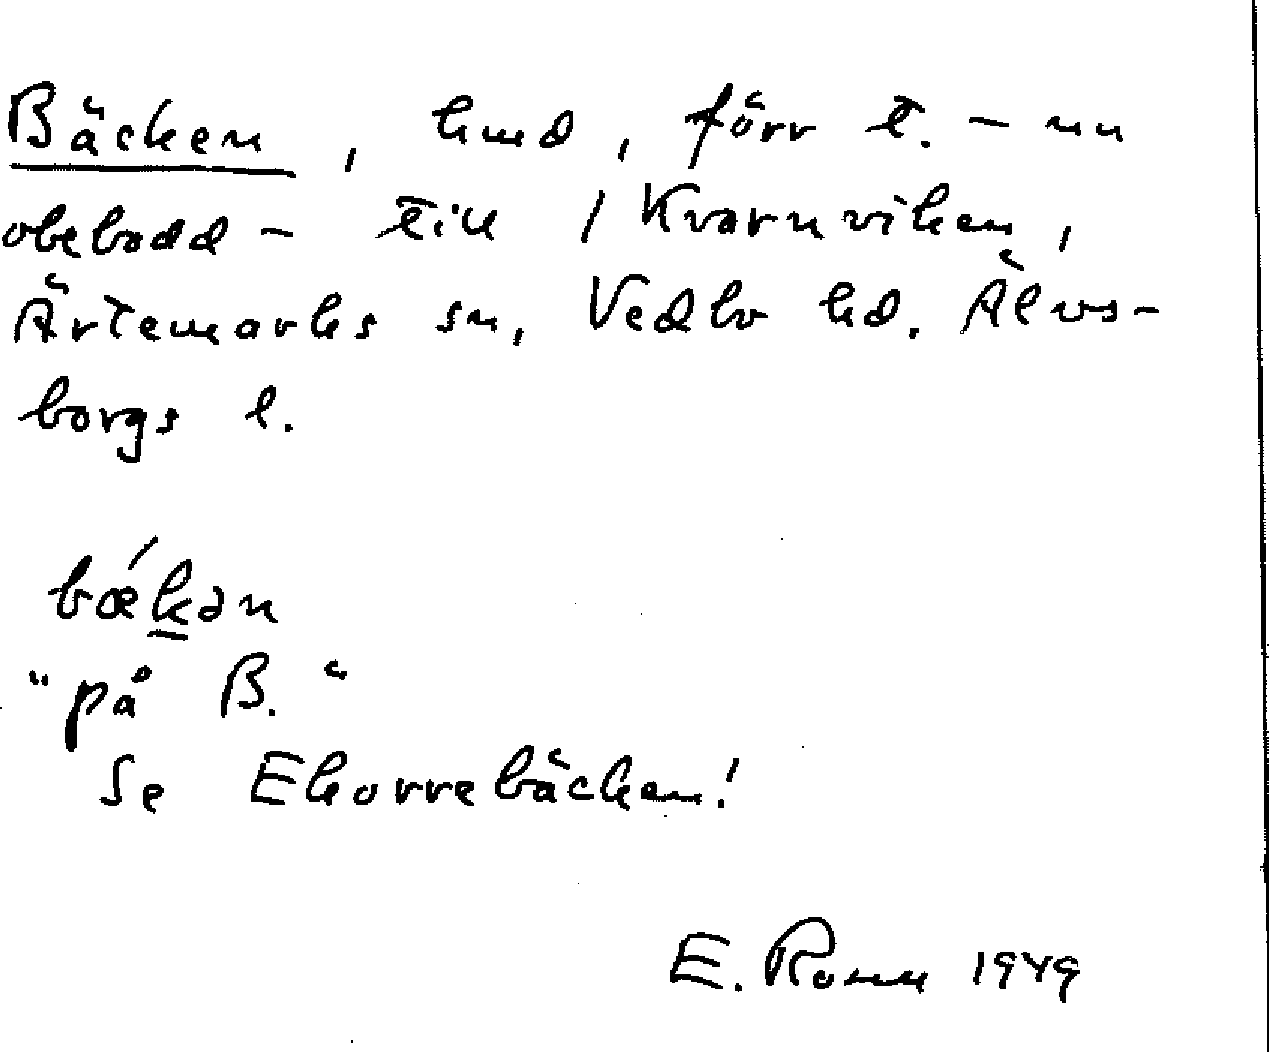 Bäcken, hmd, förr t. – nu
obebodd – till 1 Kvarnviken,
Ärtemarks sn, Vedbo hd. Älvs-
borgs l.
bǽkən
"på B."
Se Ekorrebäcken!
E. 1949